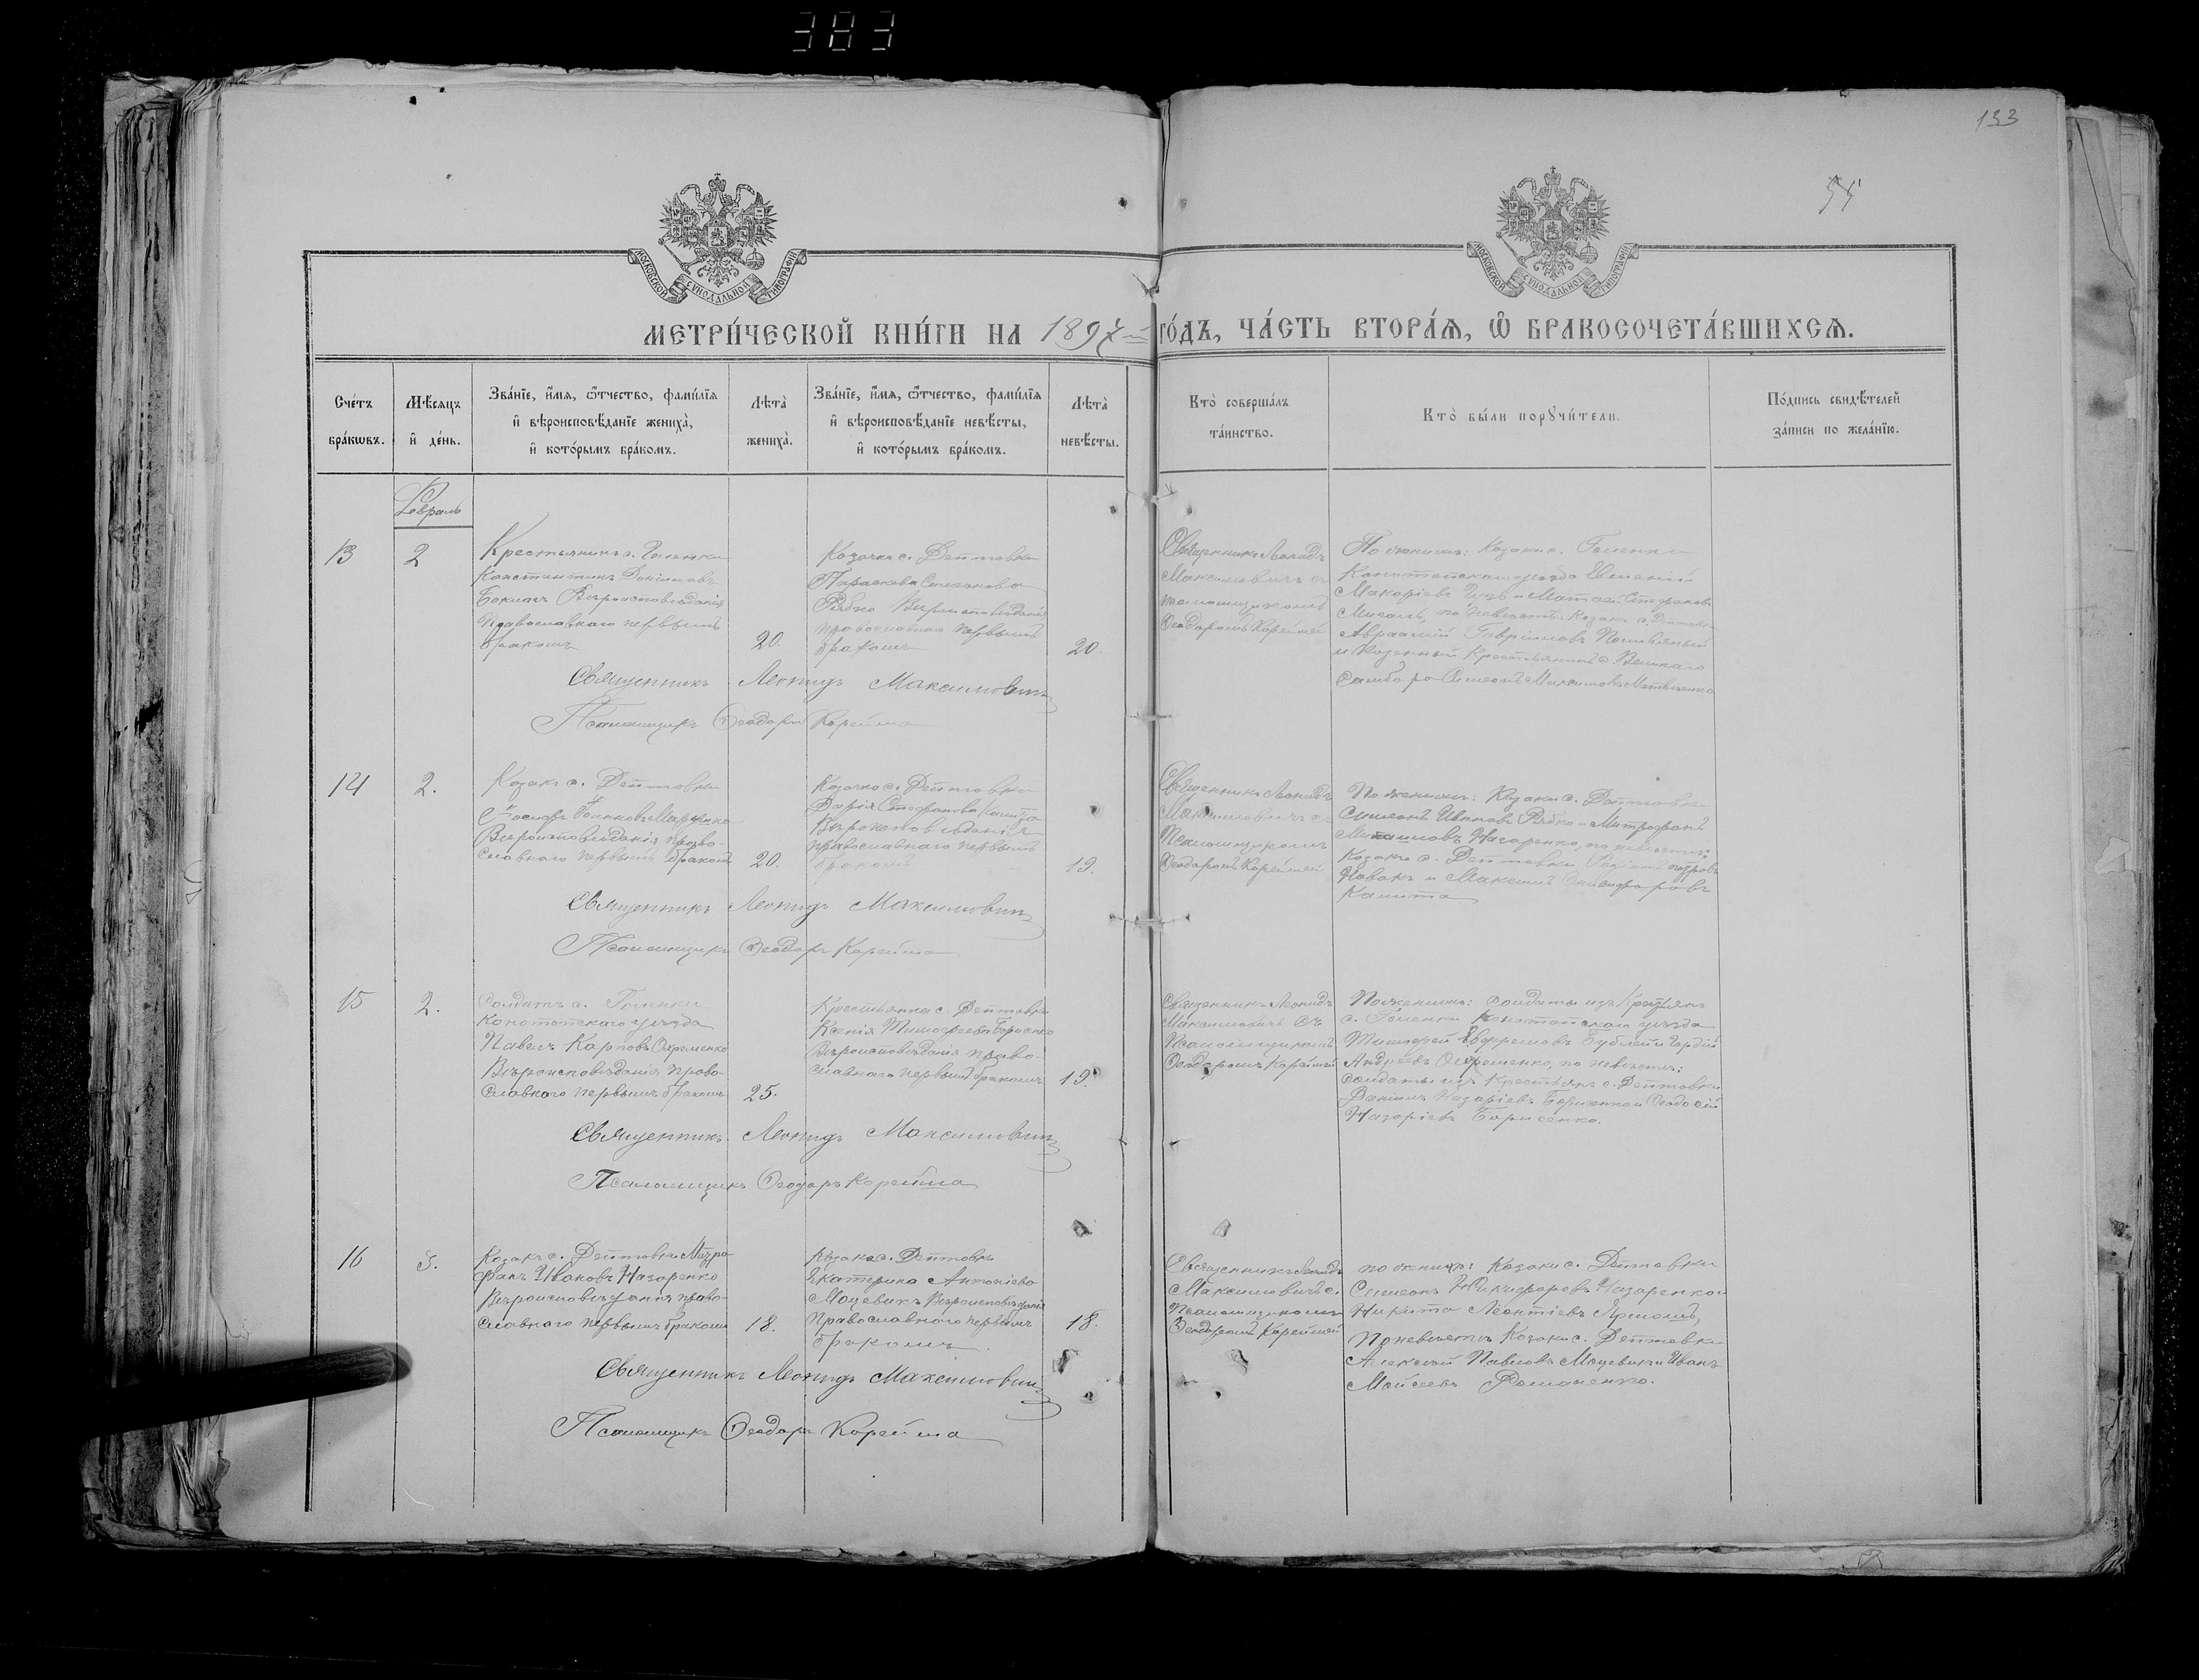 383
133
МОСКОВСКОЙ СѴНОДАЛЬНОЙ ТИПОГРАФІИ
МОСКОВСКОЙ СѴНОДАЛЬНОЙ ТИПОГРАФІИ
МЕТРИ́ЧЕСКОЙ КНИ́ГИ НА 1897 ГО́ДЪ, ЧА́СТЬ ВТОРА́Ѧ, Ѽ БРАКОСОЧЕТА́ВШИХСѦ.
Сче́тъ
бра́кѡвъ.
Мѣ́сѧцъ
и҆ де́нь.
Зва́нїе, и҆́мѧ, ѻ҆́тчество, фами́лїѧ
и҆ вѣроисповѣ́данїе жениха̀,
и҆ кото́рымъ бра́комъ.
Лѣта̀
жениха̀.
Зва́нїе, и҆́мѧ, ѻ҆́тчество, фами́лїѧ
и҆ вѣроисповѣ́данїе невѣ́сты,
и҆ кото́рымъ бра́комъ.
Лѣта̀
невѣ́сты.
Кто̀ соверша́лъ
та́инство.
Кто̀ бы́ли порꙋчи́тели.
По́дпись свидѣ́телей
за́писи по жела́нїю.
Февраль
13
2
Крестьянинъ с. Голенки
Константинъ
Вѣроисповѣданія
Православнаго первымъ
бракомъ
20.
Козачка с. Дептовки
Параскева Симеонова
Рябко Вѣроисповѣданія
православнаго первымъ
бракомъ
20.
Священникъ Леонидъ
Максимовичъ съ
псаломщикомъ
Ѳеодоромъ Корейшей
По женихѣ: Козаки с. Голенки
Конотопскаго уѣзда Евменій
Макаріевъ и Матѳей Стефановъ
по невѣстѣ: Козакъ с. Дептовки
Авраамій Гавриловъ
и Крестьянинъ с.
Самбора Симеонъ Максимовъ
Священникъ Леонидъ Максимовичъ
Псаломщикъ Ѳеодоръ Корейша
14
2.
Козакъ с. Дептовки
Іосифъ
Вѣроисповѣданія право-
славнаго первымъ бракомъ
20.
Козачка с. Дептовки
Дарія Стефанова
Вѣроисповѣданія
православнаго первымъ
бракомъ
19.
Священникъ Леонидъ
Максимовичъ съ
Псаломщикомъ
Ѳеодоромъ Корейшей
По женихѣ: Козаки с. Дептовки
Симеонъ Ивановъ Рябко и Митрофанъ
Назаренко, по невѣстѣ:
Козаки с. Дептовки Петровъ
Новакъ и Максимъ
Священникъ Леонидъ Максимовичъ
Псаломщикъ Ѳеодоръ Корейша
15
2.
Солдатъ с. Голенки
Конотопскаго уѣзда
Павелъ Карповъ Охременко
Вѣроисповѣданія Право-
славнаго первымъ бракомъ
25.
Крестьянка с. Дептовки
Ксенія Тимоѳеева Борисенко
Вѣроисповѣданія право-
славнаго первымъ бракомъ
19.
Священникъ Леонидъ
Максимовичъ съ
Псаломщикомъ
Ѳеодоромъ Корейшей
По женихѣ: солдаты изъ Крестьянъ
с. Голенки Конотопскаго уѣзда
Тимоѳей Ефремовъ и Гордій
Андреевъ Охременко, по невѣстѣ:
солдаты изъ Крестьянъ с. Дептовки
Даніилъ Назаріевъ Борисенко и Ѳеодосій
Назаріевъ Борисенко.
Священникъ Леонидъ Максимовичъ
Псаломщикъ Ѳеодоръ Корейша
16
5.
Козакъ с. Дептовки Митро-
фанъ Ивановъ Назаренко
Вѣроисповѣданія право-
славнаго первымъ бракомъ
18.
Козачка с. Дептовки
Екатерина Антоніева
Мацевикъ Вѣроисповѣданія
Православнаго первымъ
бракомъ.
18.
Священникъ Леонидъ
Максимовичъ съ
Псаломщикомъ
Ѳеодоромъ Корейшей
по женихѣ: Козаки с. Дептовки
Симеонъ Никифоровъ Назаренко и
Никита Леонтіевъ
По невѣстѣ Козаки с. Дептовки
Алексѣй Павловъ Мацевикъ и Иванъ
Моисеевъ Романенко.
Священникъ Леонидъ Максимовичъ
Псаломщикъ Ѳеодоръ Корейша